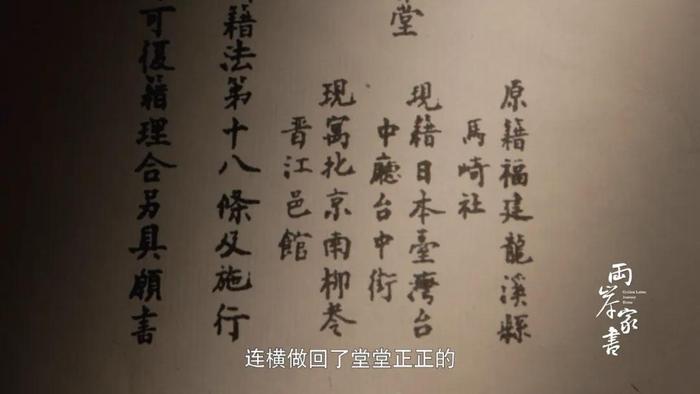 原籍福建龍溪縣
馬崎社
現籍日本臺灣台
中廳台中街
現寓北京南柳巷
晋江邑館
堂
籍法第十八條及施行
可復籍理合另具願書
兩岸家書
连横做回了堂堂正正的